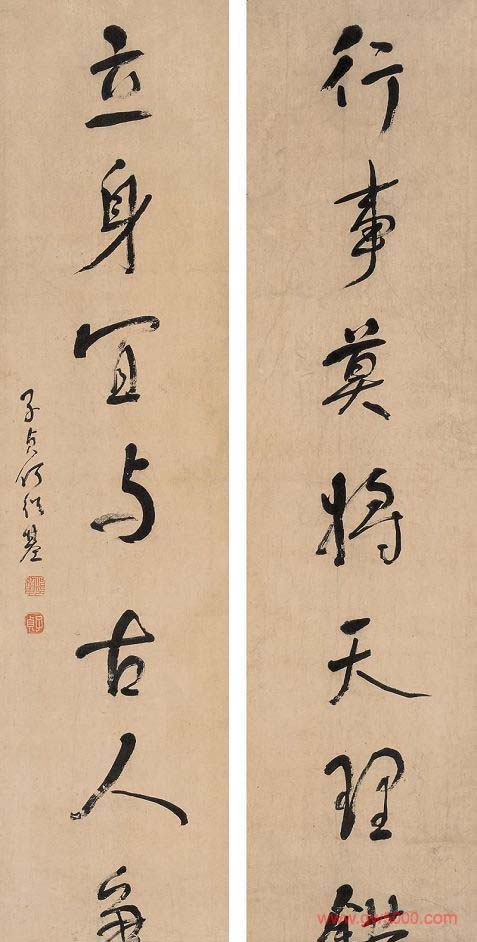 行事莫將天理錯
立身宜与古人爭
子貞何紹基
子貞